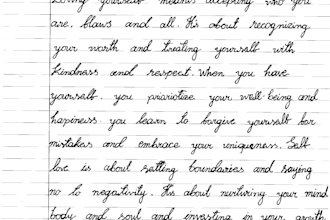 Loving yourself means accepting who you
are, blaws and all. It's about recognizing
your worth and treating yourself with
kindness and respect. When you have
yourself, you priariotize your well-being and
happiness. you learn to borgive yourself bor
mistakes and embrace your uniqueness. Self
love is about setting boundaries and saying
no to negartivity. It's about nurturing your mind
body and soul and investing in your growth